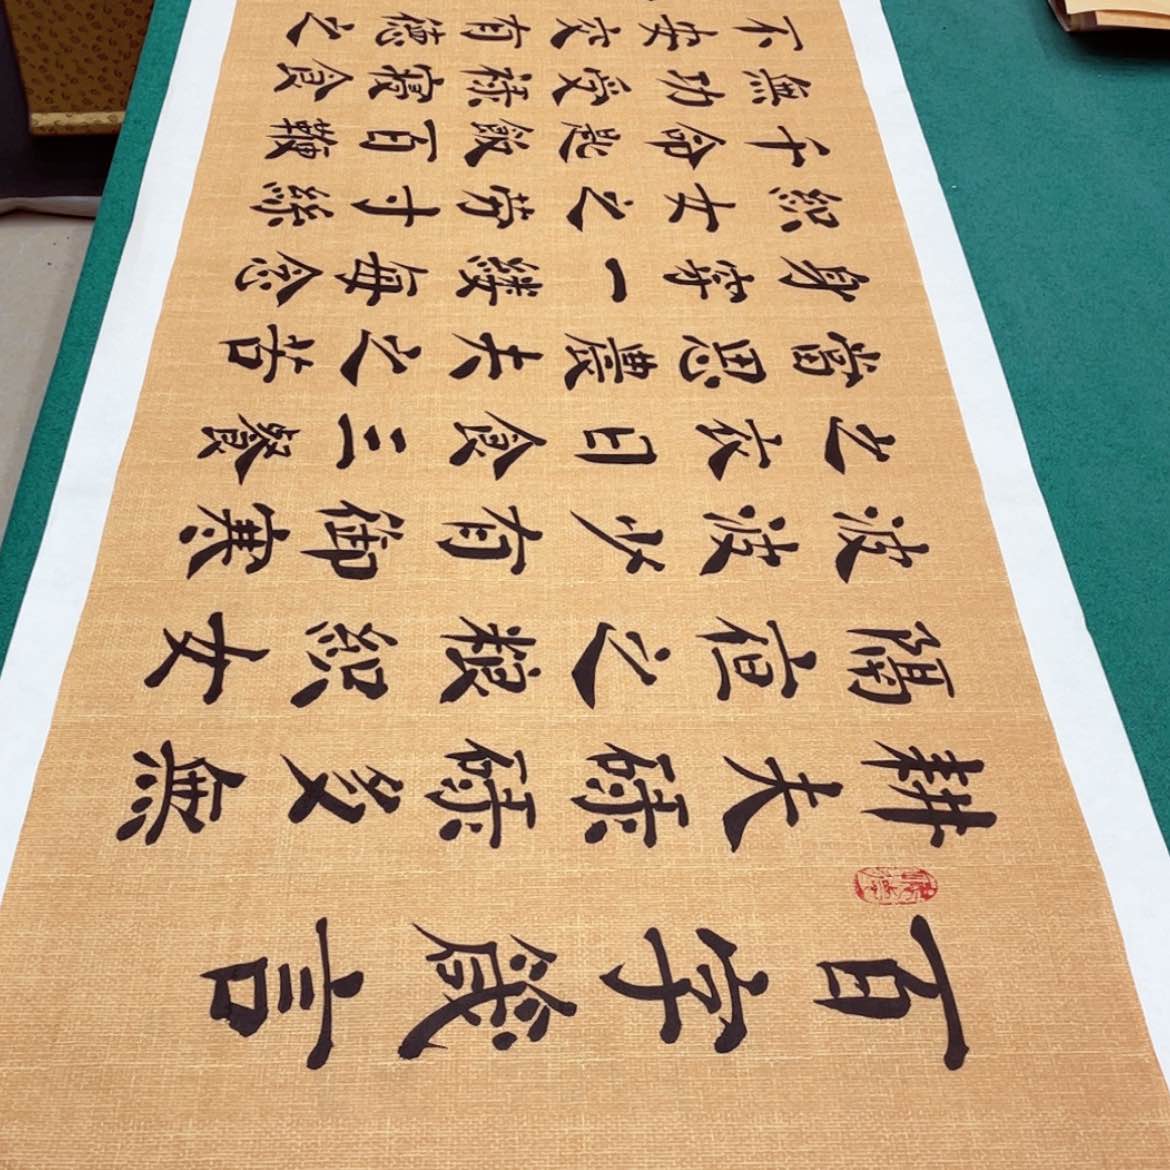 百字箴言
耕夫碌碌多無
隔夜之粮織女
波波少有御寒
之衣日食三餐
當思農夫之苦
身穿一縷每念
織女之勞寸絲
千命匙飯百鞭
無功受祿寢食
不安交有德之